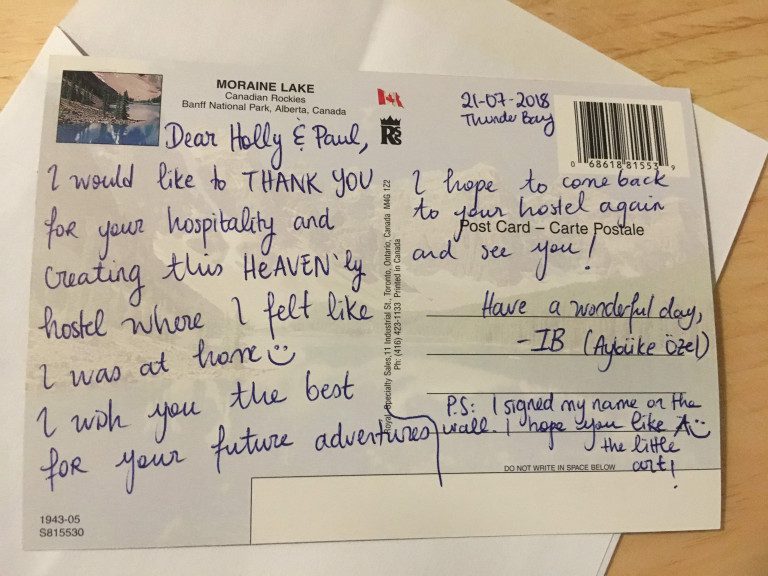 MORAINE LAKE
Canadian Rockies
Banff National Park, Alberta, Canada
Dear Holly & Paul,
I would like to THANK YOU
for your hospitality and
creating this HeAVEN'ly
hostel where I felt like
I was at home
I wish you the best
for your future adventures
1943-05
S815530
Royal Specialty Sales, 11 Industrial St., Toronto, Ontario, Canada M4G 1Z2
Ph: (416) 423-1133 Printed in Canada
21-07-2018
Thunder Bay
0 68618 81553 9
I hope to come back
to your hostel again
Post Card – Carte Postale
and see you!
Have a wonderful day,
-IB (Aybüke Özel)
P.S: I signed my name on the
wall. I hope you like
the little
art!
DO NOT WRITE IN SPACE BELOW